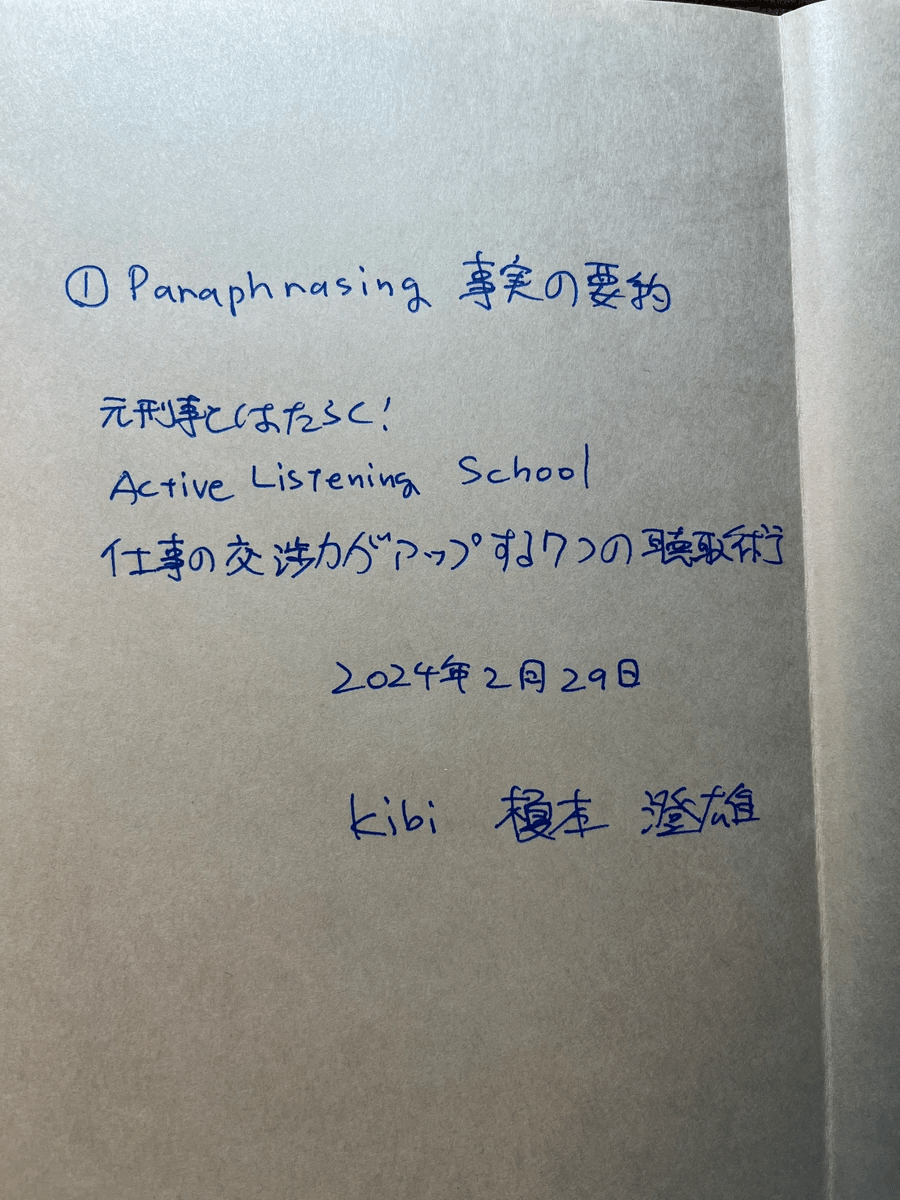 ① Paraphrasing 事実の要約
元刑事とはたらく!
Active Listening School
仕事の交渉力がアップする7つの聴取術
2024年2月29日
kibi 榎本 澄雄